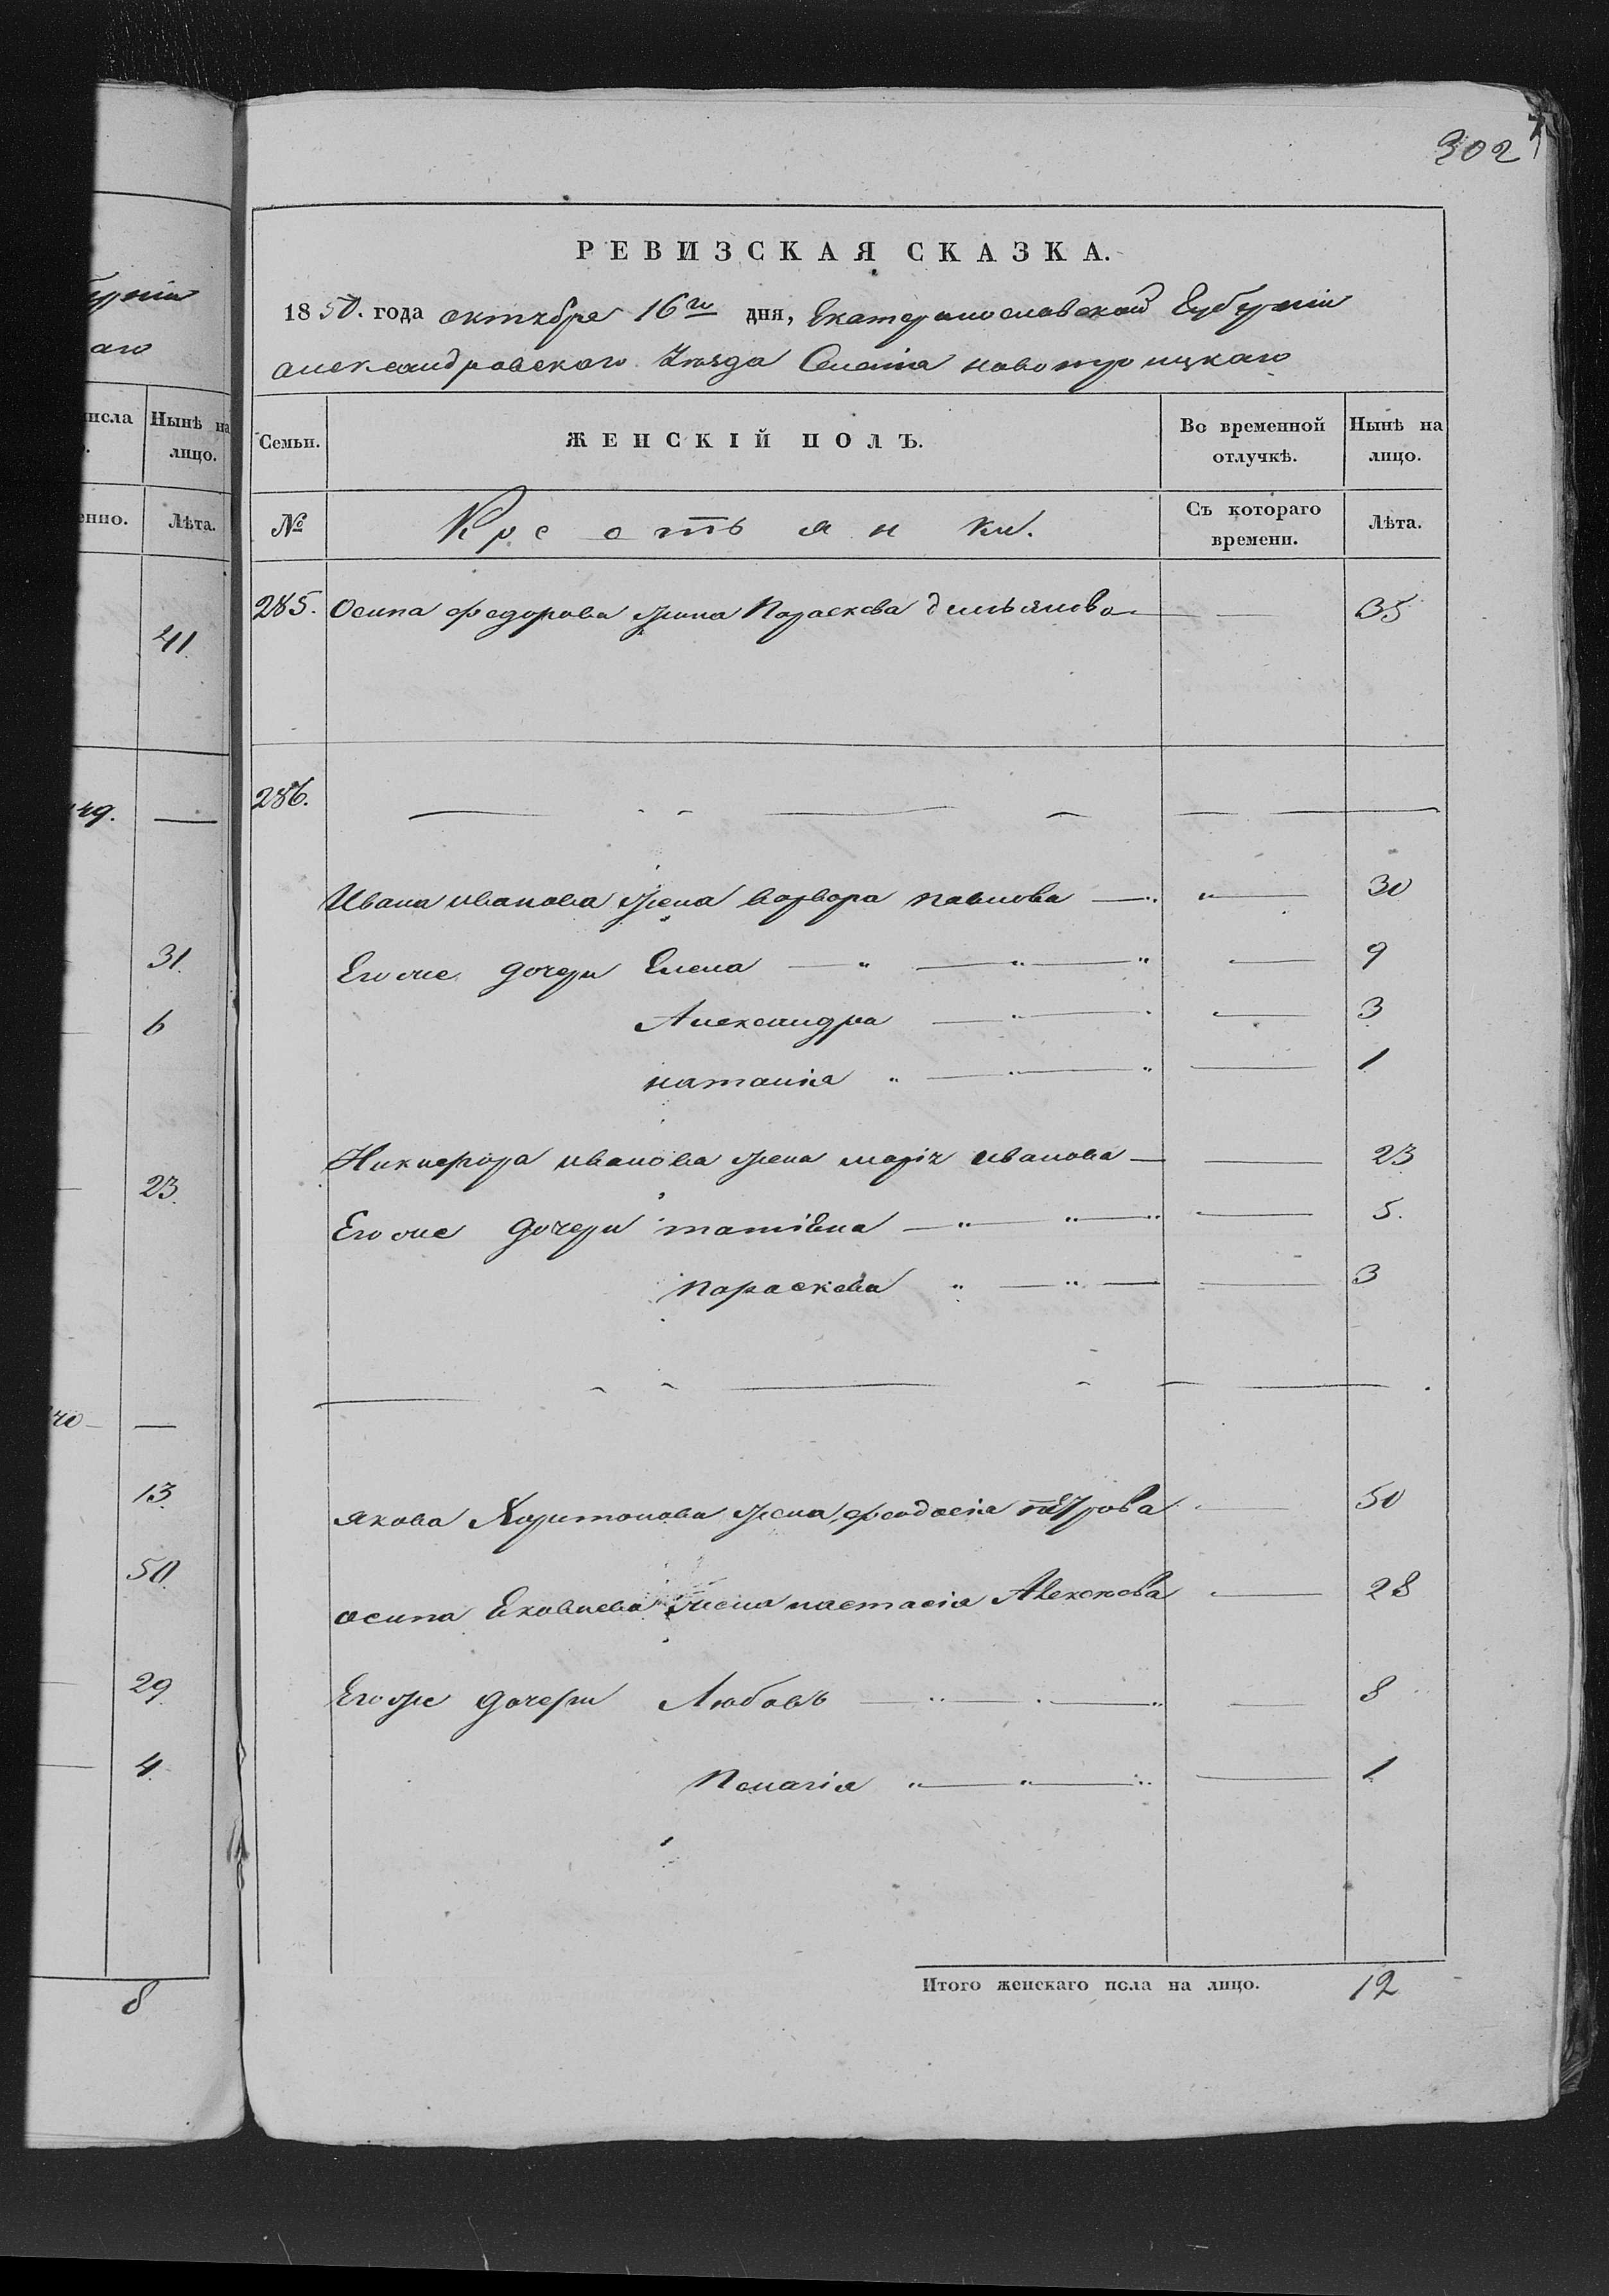 302
РЕВИЗСКАЯ СКАЗКА.
1850. года октября 16го дня, Екатеринославской Губернiи
александровскаго Уѣзда Селенiя новотроицкаго
Семьи.
ЖЕНСКIЙ ПОЛЪ.
Во временной отлучкѣ.
Нынѣ на лицо.
№
Крестьянки.
Съ котораго времени.
Лѣта.
285. Осипа федорова жена Параскева демьянова — 35
286. —
Ивана иванова жена варвара павлова — 30
Егоже дочери Елена — 9
Александра — 3
наталiя — 1
Никифора иванова жена марiя иванова — 23
Егоже дочери татiяна — 5.
параскева — 3
—
якова Харитонова жена феодосiя петрова — 50
осипа Яковлева жена настасiя Алексеева — 28
Егоже дочери Любовь — 8
Пелагiя — 1
Итого женскаго пола на лицо. 12
губернiи
аго
числа
Нынѣ на лицо.
енно.
Лѣта.
41
149. —
31.
6
23.
40 —
13.
50.
29.
4.
8